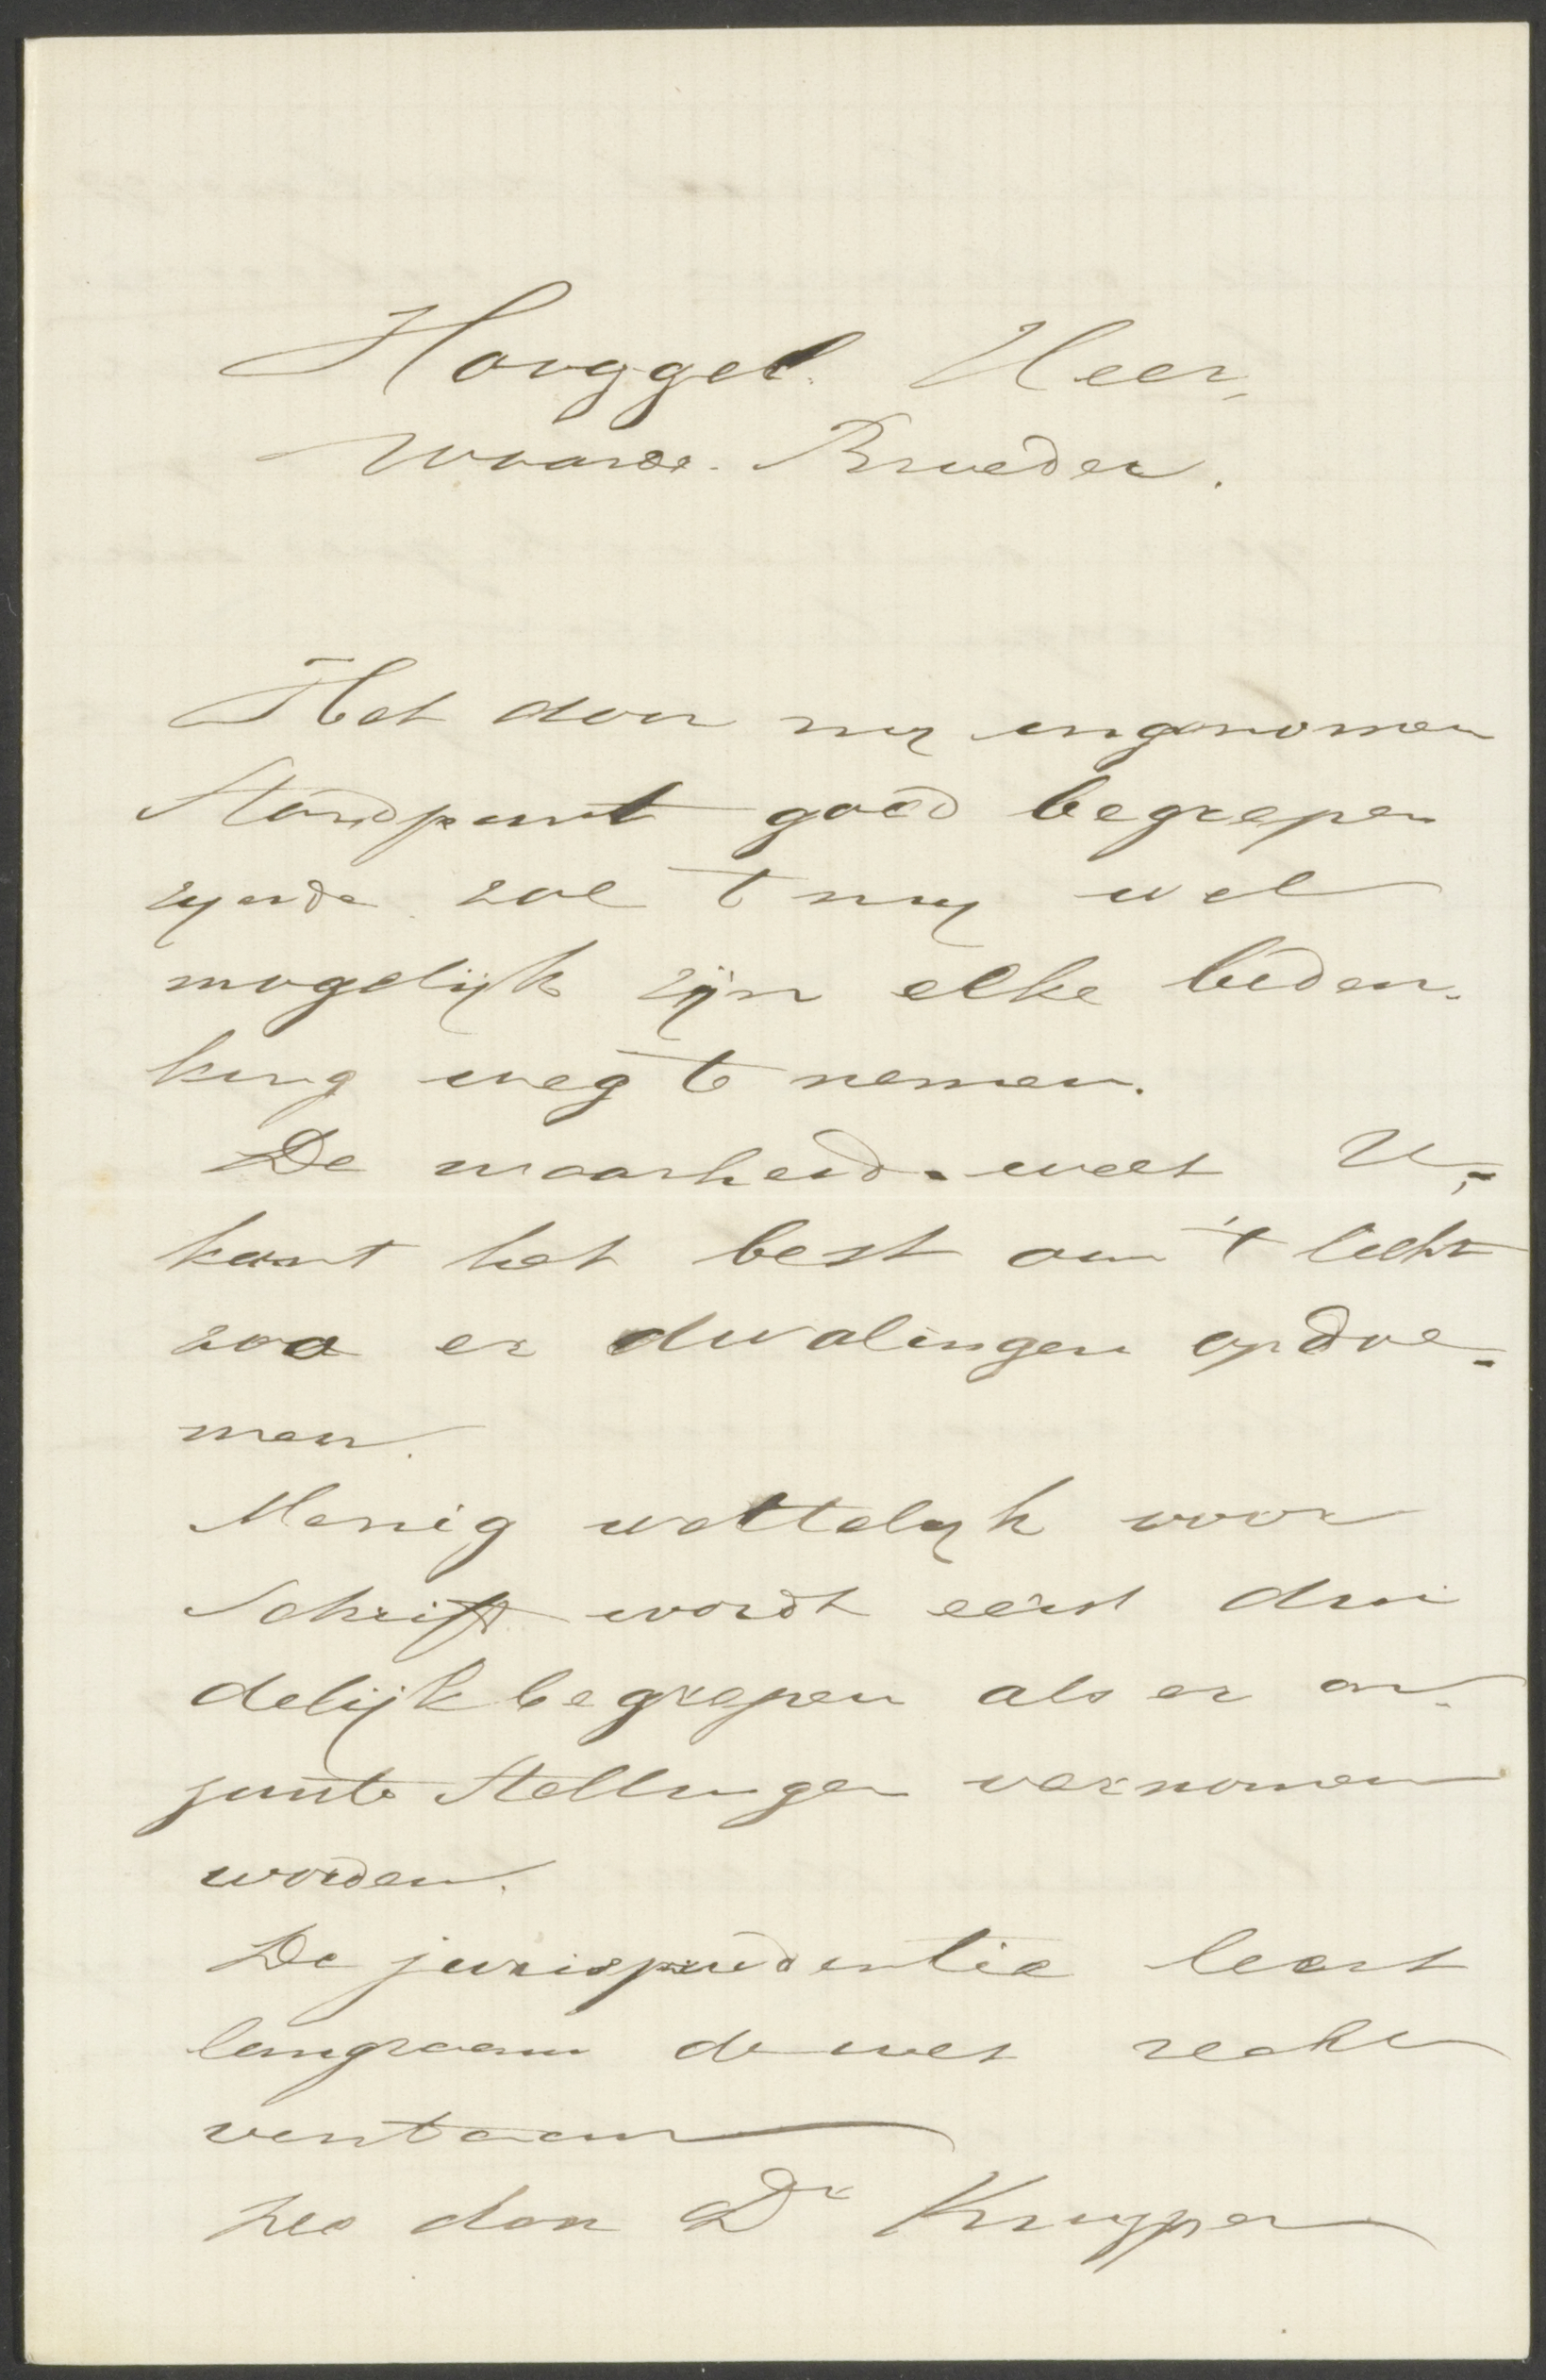 Hooggel. Heer,
Waarde. Broeder.
Het door mij ingenomen
Standpunt goed begrepen
zijnde zal 't mij wel
mogelijk zijn elke beden-
king weg te nemen.
De waarheid weet U,
komt het best aan 't licht
zoo er dwalingen opdoe-
men.
Menig wettelijk voor
Schrift wordt eerst dui
delijk begrepen als er on-
juiste Stellingen vernomen
worden.
De jurisprudentie leert
langzaam de wet recht
verstaan
Zoo dan Dr Kuyper